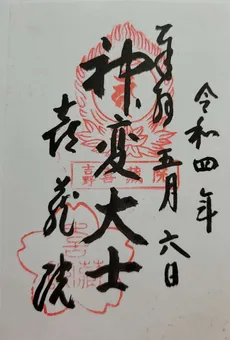 令和四年
奉拝 五月六日
神変大士
喜蔵院
吉野 喜蔵院